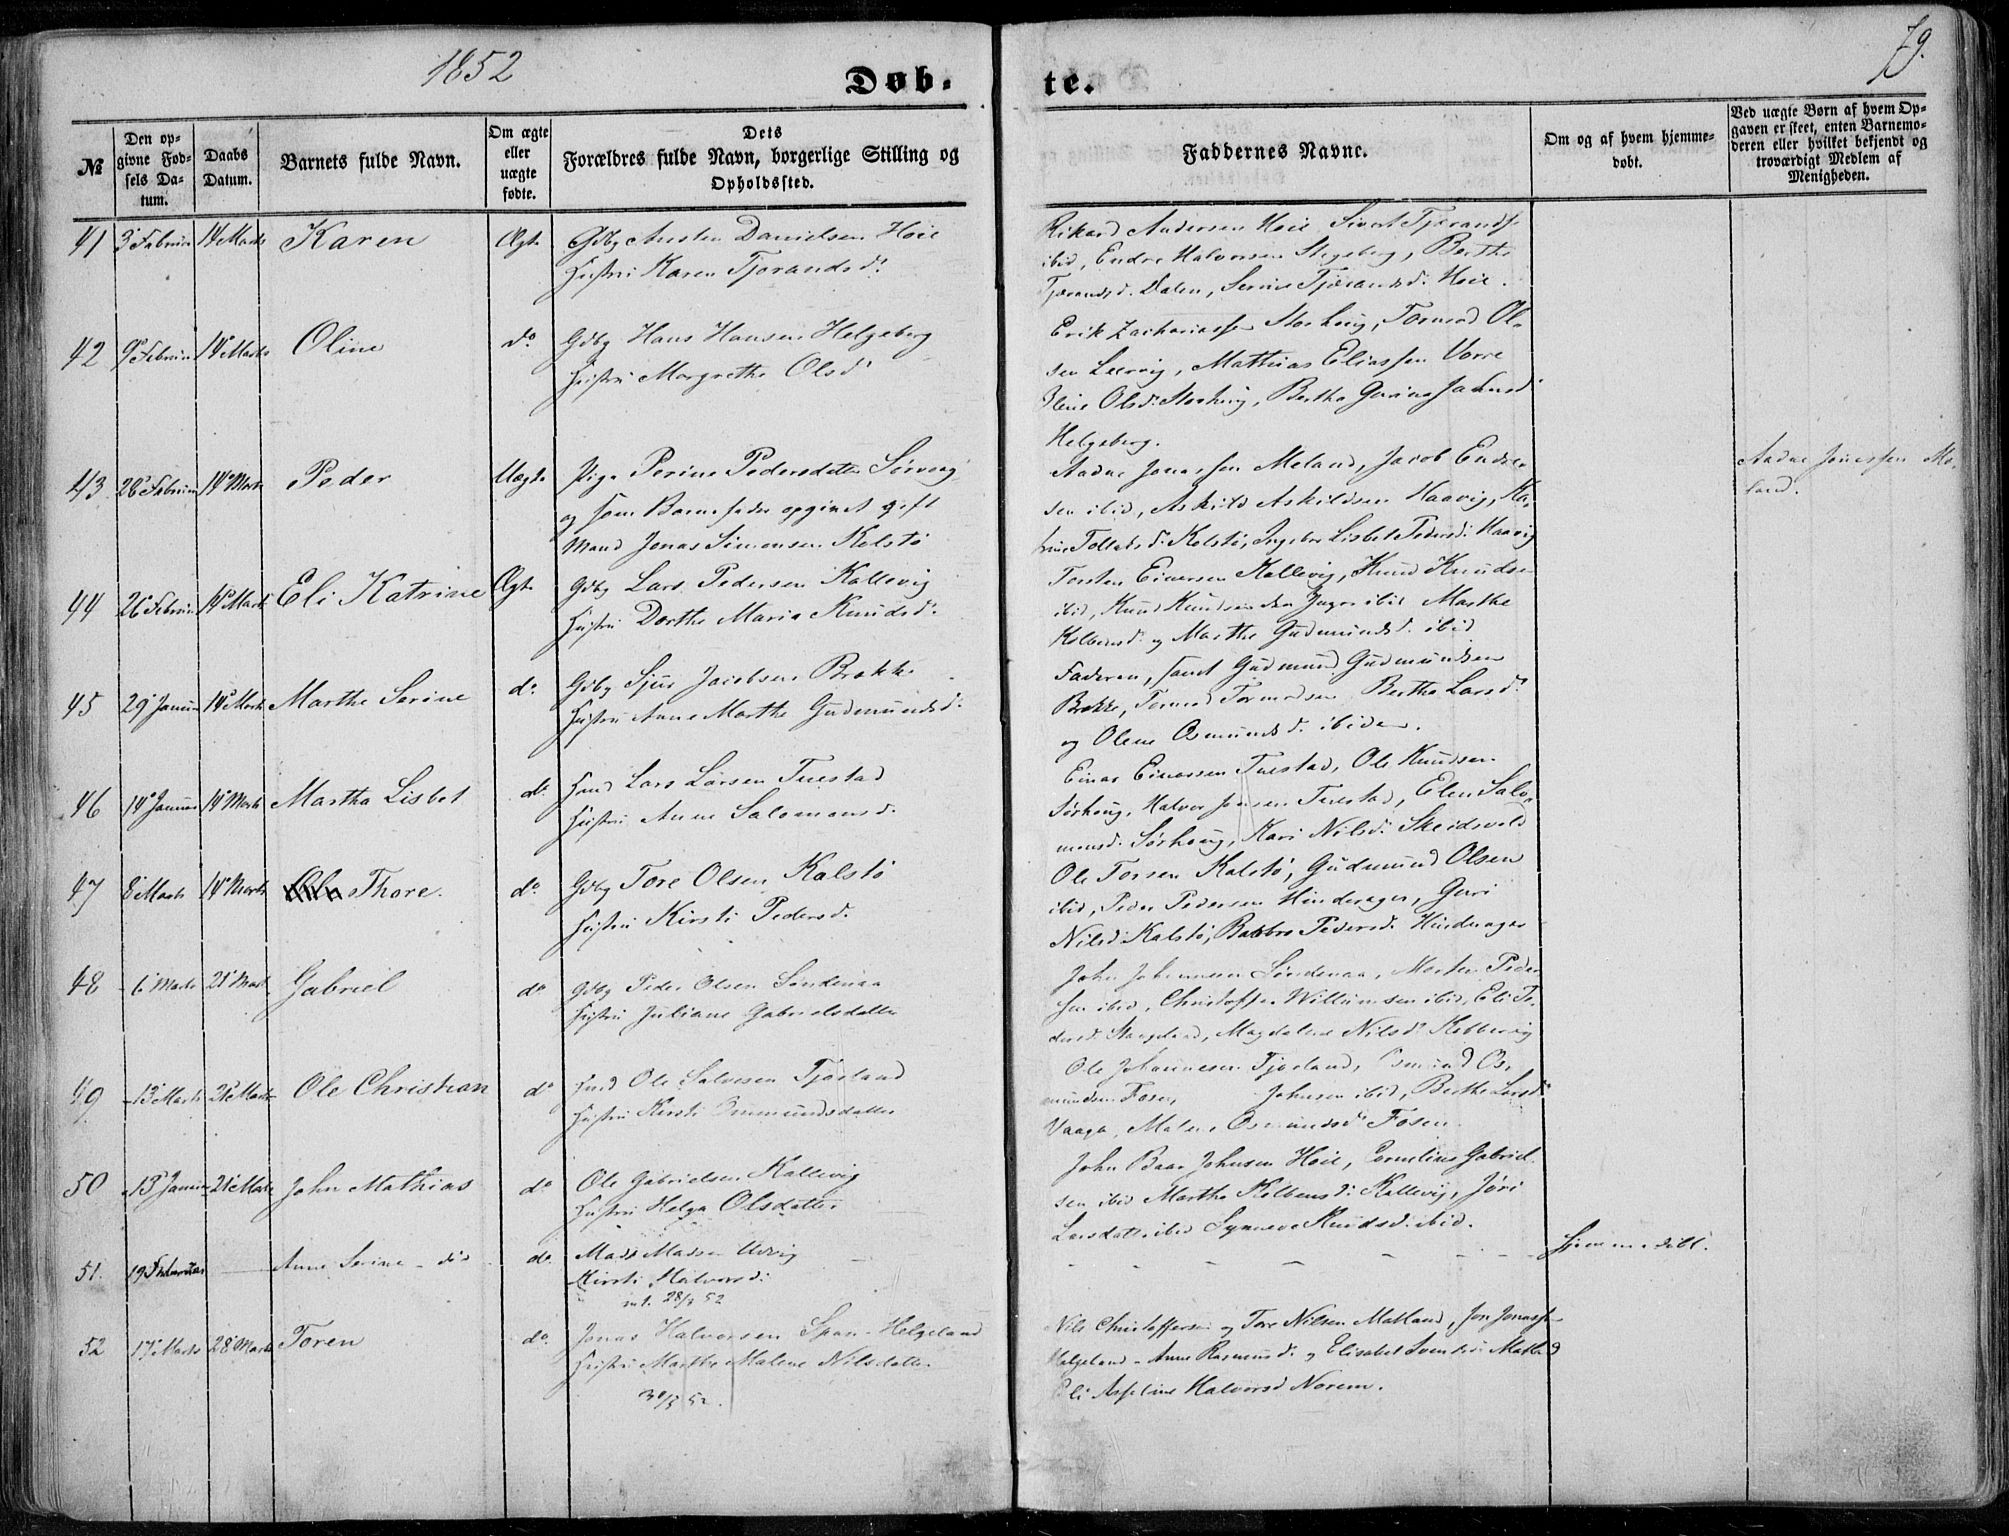 1852
79.
Døb-
te.
№
Den op-
givne Fød-
sels Da-
tum.
Daabs
Datum.
Barnets fulde Navn.
Om ægte
eller
uægte
fødte.
Dets
Forældres fulde Navn, borgerlige Stilling og
Opholdssted.
Faddernes Navne.
Om og af hvem hjemme-
døbt.
Ved uægte Børn af hvem Op-
gaven er skeet, enten Barnemo-
deren eller hvilket bekjendt og
troværdigt Medlem af
Menigheden.
41 3 Februar 14 Marts Karen Ægte Gdbg Austen Danielsen Høie
Hustru Karen Tjørandsd.
Rikard Andersen Høie Sivert Tjørands
ibid, Endre Halvorsen Stegeberg, Berthe
Tjørandsd. Dalen, Serine Tjørandsd. Høie.
42 9 Februar 14 Marts Oline do Gdbg Hans Hansen Helgeberg
Hustru Margrethe Olsd
Erik Zachariassen Storhoug, Tormod Ol-
sen Leervig, Mathias Eliassen Vorre
Oline Olsd. Storhoug, Berthe Gurina
Helgeberg.
43 26 Februar 14 Marts Peder Uægte Pige Perine Pedersdatter Sørvaag
og som Barnefader opgivet gift
Mand Jonas Simonsen Kolstø
Aadne Jonassen Meland, Jacob Endre-
sen ibid, Askild Askildsen Haavig, Ka-
trine Tollaksd. Kolstø, Ingebor Lisbet Pedersd. Haavig
Aadne Jonassen Me-
land.
44 26 Februar 14 Marts Eli Katrine Ægte Gdbg Lars Pedersen Kallevig
Hustru Dorthe Maria Knudsd.
Torsten Einersen Kallevig, Knud Knudsen
ibid, Knud Knudsen den Yngre ibid Marthe
Kolbensd. og Marthe Gudmundsd. ibid
45 29 Januar 14 Marts Marthe Serine do Gdbg Sjur Jacobsen Brekke
Hustru Anne Marthe Gudmundsd.
Faderen, samt Gudmund Gudmundsen
Brekke, Tormod Tormodsen Berthe Larsd.
og Olene Osmundsd. ibidem.
46 14 Januar 14 Marts Martha Lisbet do Hmd Lars Larsen Tuestad
Hustru Anne Salomonsd.
Einar Einarsen Tuestad, Ole Knudsen
Sørhoug, Halvor Jonsen Tuestad, Elen Salo-
monsd. Sørhoug, Kari Nilsd. Skeidsvold
47 8 Marts 14 Marts Thore. do Gdbg Tore Olsen Kalstø
Hustru Kirsti Pedersd.
Ole Torsen Kalstø, Gudmund Olsen
ibid, Peder Pedersen Hinderager, Guri
Nilsd. Kalstø, Barbro Pedersd. Hinderager
48 6 Marts 21 Marts Gabriel do Gdbg Peder Olsen Søndenaa
Hustru Juliane Gabrielsdatter
John Johannesen Søndenaa, Morten Peder-
sen ibid, Christoffer Willumsen ibid, Eli Pe-
dersd. Stangeland, Magdalene Nilsd. Kobbervig
49 13 Marts 21 Marts Ole Christian do Hmd Ole Salvesen Tjøsland
Hustru Kirsti Ommundsdatter
Ole Johannesen Tjøsland, Osmund Os-
mundsen Fosen, Johnsen ibid, Berthe Larsd.
Vaaga, Malene Osmundsd. Fosen.
50 13 Januar 21 Marts John Mathias do Ole Gabrielsen Kallevig
Hustru Helga Olsdatter
John Baar Johnsen Høie, Cornelius Gabriel-
sen ibid Marthe Kolbensd. Kallevig, Jøri
Larsdatter ibid Synneva Knudsd. ibid.
51. 19 Februar Anne Serine do Mads Madsen Udvig
Kirsti Halvorsd.
int. 28/3 52
Hjemmedøbt.
52 17 Marts 28 Marts Toren do Jonas Halvorsen Span- Helgeland
Hustru Marthe Malene Nilsdatter
30/3 52.
Nils Christoffersen og Tore Nilsen Matland, Jon Jonassen
Helgeland - Anne Rasmusd. og Elisabet Svendsd. Matland
Eli Asseline Halvorsd Norem.